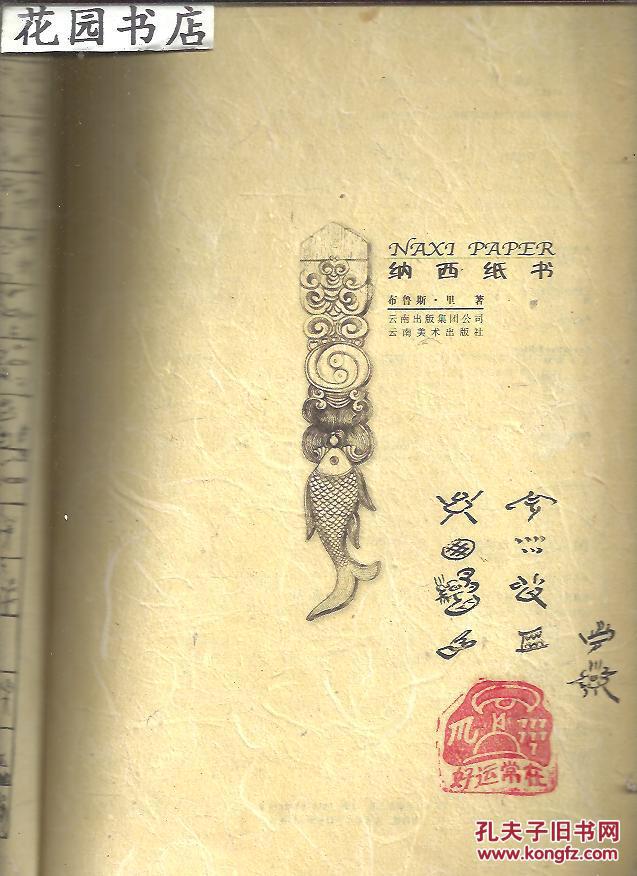 花园书店
NAXI PAPER
纳西纸书
布鲁斯·里 著
云南出版集团公司
云南美术出版社
好运常在
孔夫子旧书网
www.kongfz.com